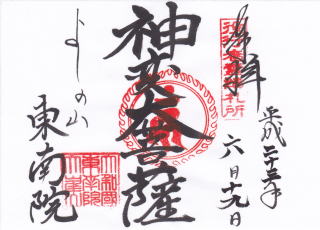 奉拝
平成二十三年
六月十九日
神変大菩薩
よしの山
東南院